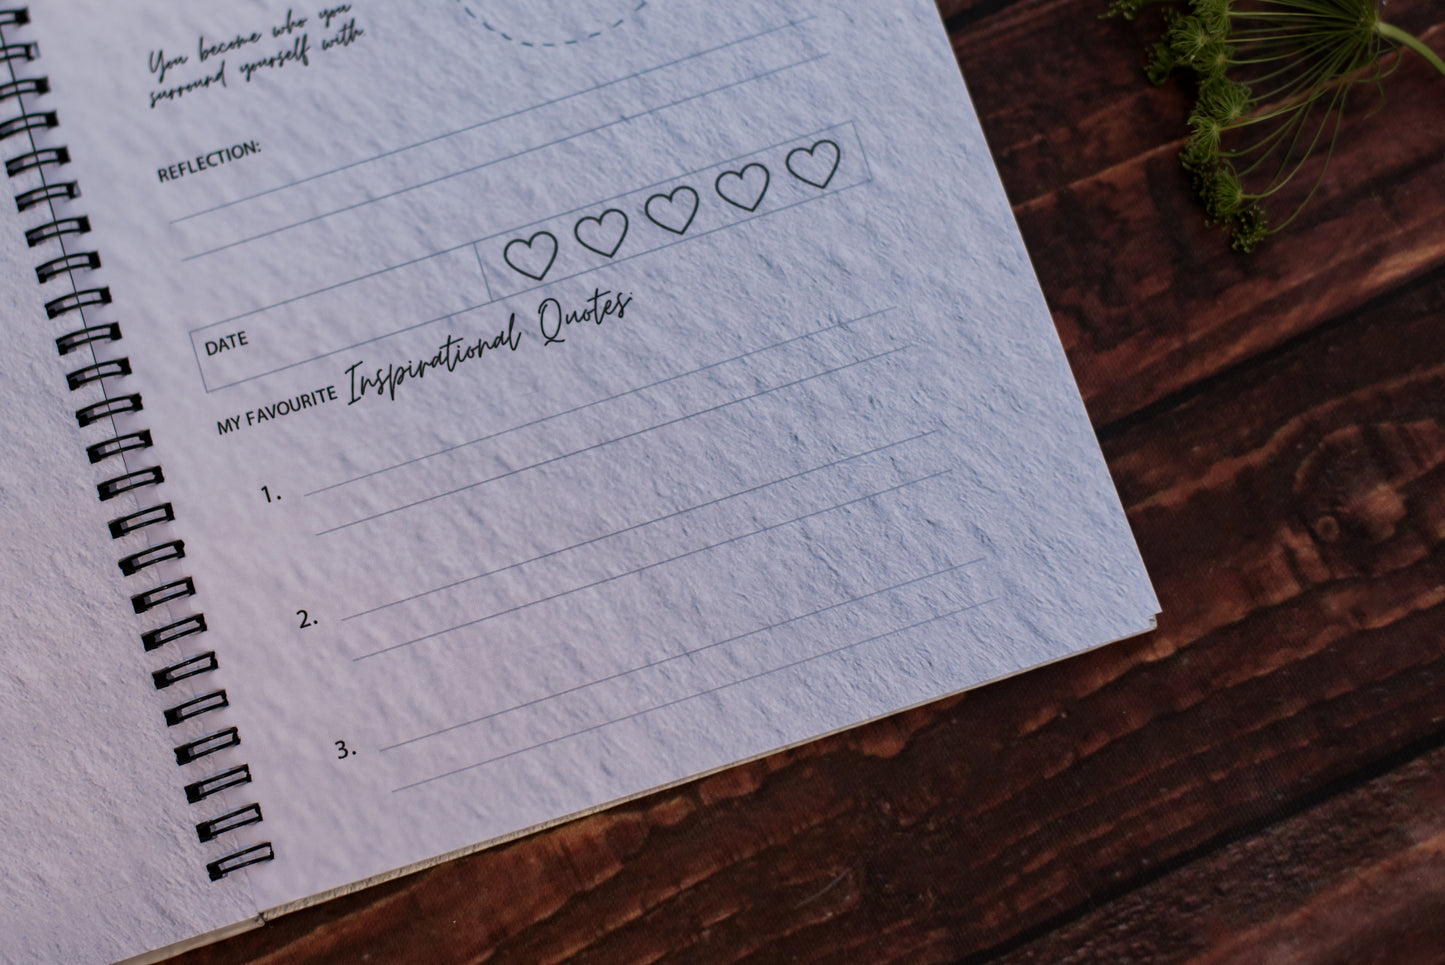 You become who you
surround yourself with
REFLECTION:
DATE
MY FAVOURITE Inspirational Quotes:
1.
2.
3.